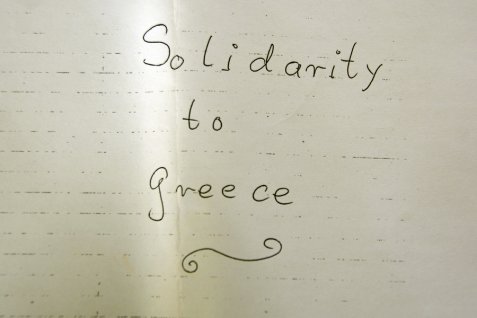 Solidarity
to
greece